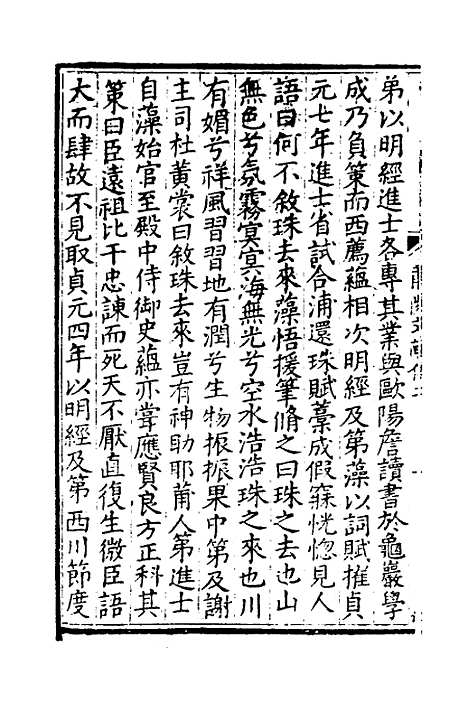 弟以明經進士各專其業與歐陽詹讀書於龜巖學
成乃負策而西薦藴相次明經及第藻以詞賦擢貞
元七年進士省試合浦還珠賦藁成假寐恍惚見人
語曰何不敘珠去來藻悟援筆脩之曰珠之去也山
無色兮氛霧冥冥海無光兮空水浩浩珠之來也川
有媚兮祥風習習地有潤兮生物振振果中第及謝
主司杜黄裳曰敘珠去來豈有神助耶莆人第進士
自藻始官至殿中侍御史藴亦嘗應賢良方正科其
策曰臣遠祖比干忠諫而死天不厭直復生微臣語
大而肆故不見取貞元四年以明經及第西川節度